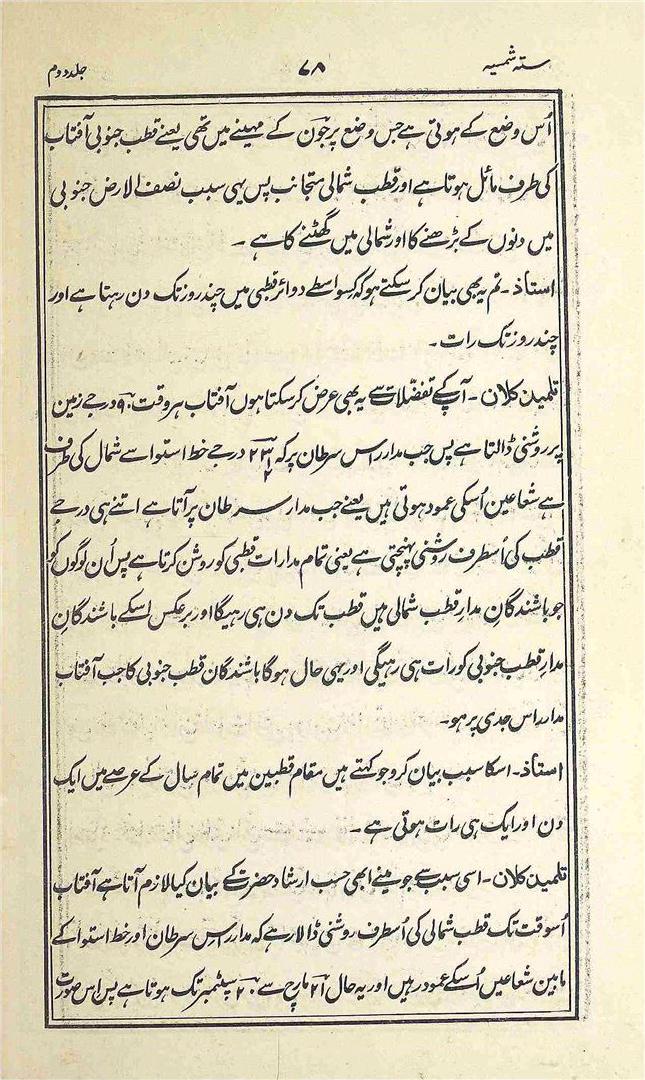 ستہ شمسیہ ۷۸ جلد دوم
اُس وضع کے ہوتی ہے جس وضع پر جون کے مہینے میں تھی یعنے قطب جنوبی آفتاب
کی طرف مائل ہوتا ہے اور قطب شمالی متجانب پس یہی سبب نصف الارض جنوبی
میں دنوں کے بڑھنے کا اور شمالی میں گھٹنے کا ہے ۔
استاذ ۔ تم یہ بھی بیان کر سکتے ہو کہ کسواسطے دوائر قطبی میں چند روز تک دن رہتا ہے اور
چند روز تک رات ۔
تلمیذ کلان ۔ آپ کے تفضّلات سے یہ بھی عرض کر سکتا ہوں آفتاب ہر وقت ۹۰ درجے زمین
پر روشنی ڈالتا ہے پس جب مدار راس سرطان پر کہ ۲۳ ۱/۲ درجے خط استوا سے شمال کی طرف
ہے شعاعین اُسکی عمود ہوتی ہیں یعنے جب مدار سرطان پر آتا ہے اتنے ہی درجے
قطب کی اُسطرف روشنی پہنچتی ہے یعنی تمام مدارات قطبی کو روشن کرتا ہے پس اُن لوگوں کو
جو باشندگانِ مدارِ قطب شمالی ہیں قطب تک دن ہی رہیگا اور برعکس اسکے باشندگانِ
مدارِ قطب جنوبی کو رات ہی رہیگی اور یہی حال ہوگا باشندگان قطب جنوبی کا جب آفتاب
مدار راس جدی پر ہو ۔
استاذ ۔ اسکا سبب بیان کرو جو کہتے ہیں مقام قطبین میں تمام سال کے عرصے میں ایک
دن اور ایک ہی رات ہوتی ہے ۔
تلمیذ کلان ۔ اسی سبب سے جو مینے ابھی حسب ارشاد حضرت کے بیان کیا لازم آتا ہے آفتاب
اُسوقت تک قطب شمالی کی اُسطرف روشنی ڈالا رہے کہ مدار راسِ سرطان اور خط استوا کے
مابین شعاعیں اُسکے عمود رہیں اور یہ حال ۲۱ مارچ سے ۲۰ سپٹمبر تک ہوتا ہے پس اس صورت